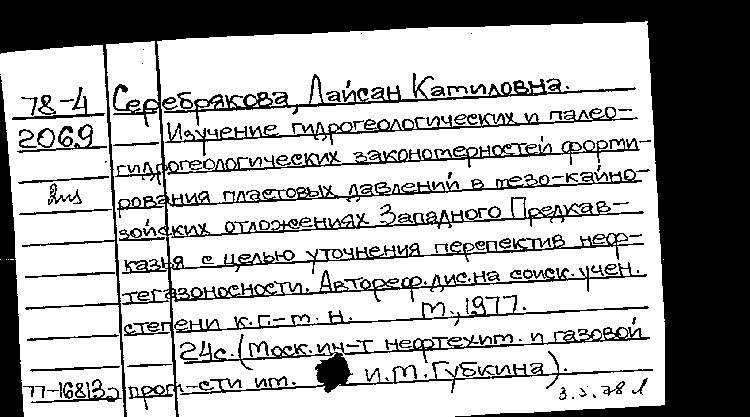 78-4 Серебрякова, Лайсан Катиловна.
2069 Изучение гидрогеологических и палео-
гидрогеологических закономерностей форми-
2ms рования пластовых давлений в мезо-кайно-
зойских отложениях Западного Предкав-
казья с целью уточнения перепектив неф-
тегазоносности. Автореф.дис.на соиск.учен.
степени к.г.-м. н. М., 1977.
24с. (Моск.ин-т нефтехим. и газовой
77-16813э пром-сти им. И.М.Губкина).
3.5.78 л